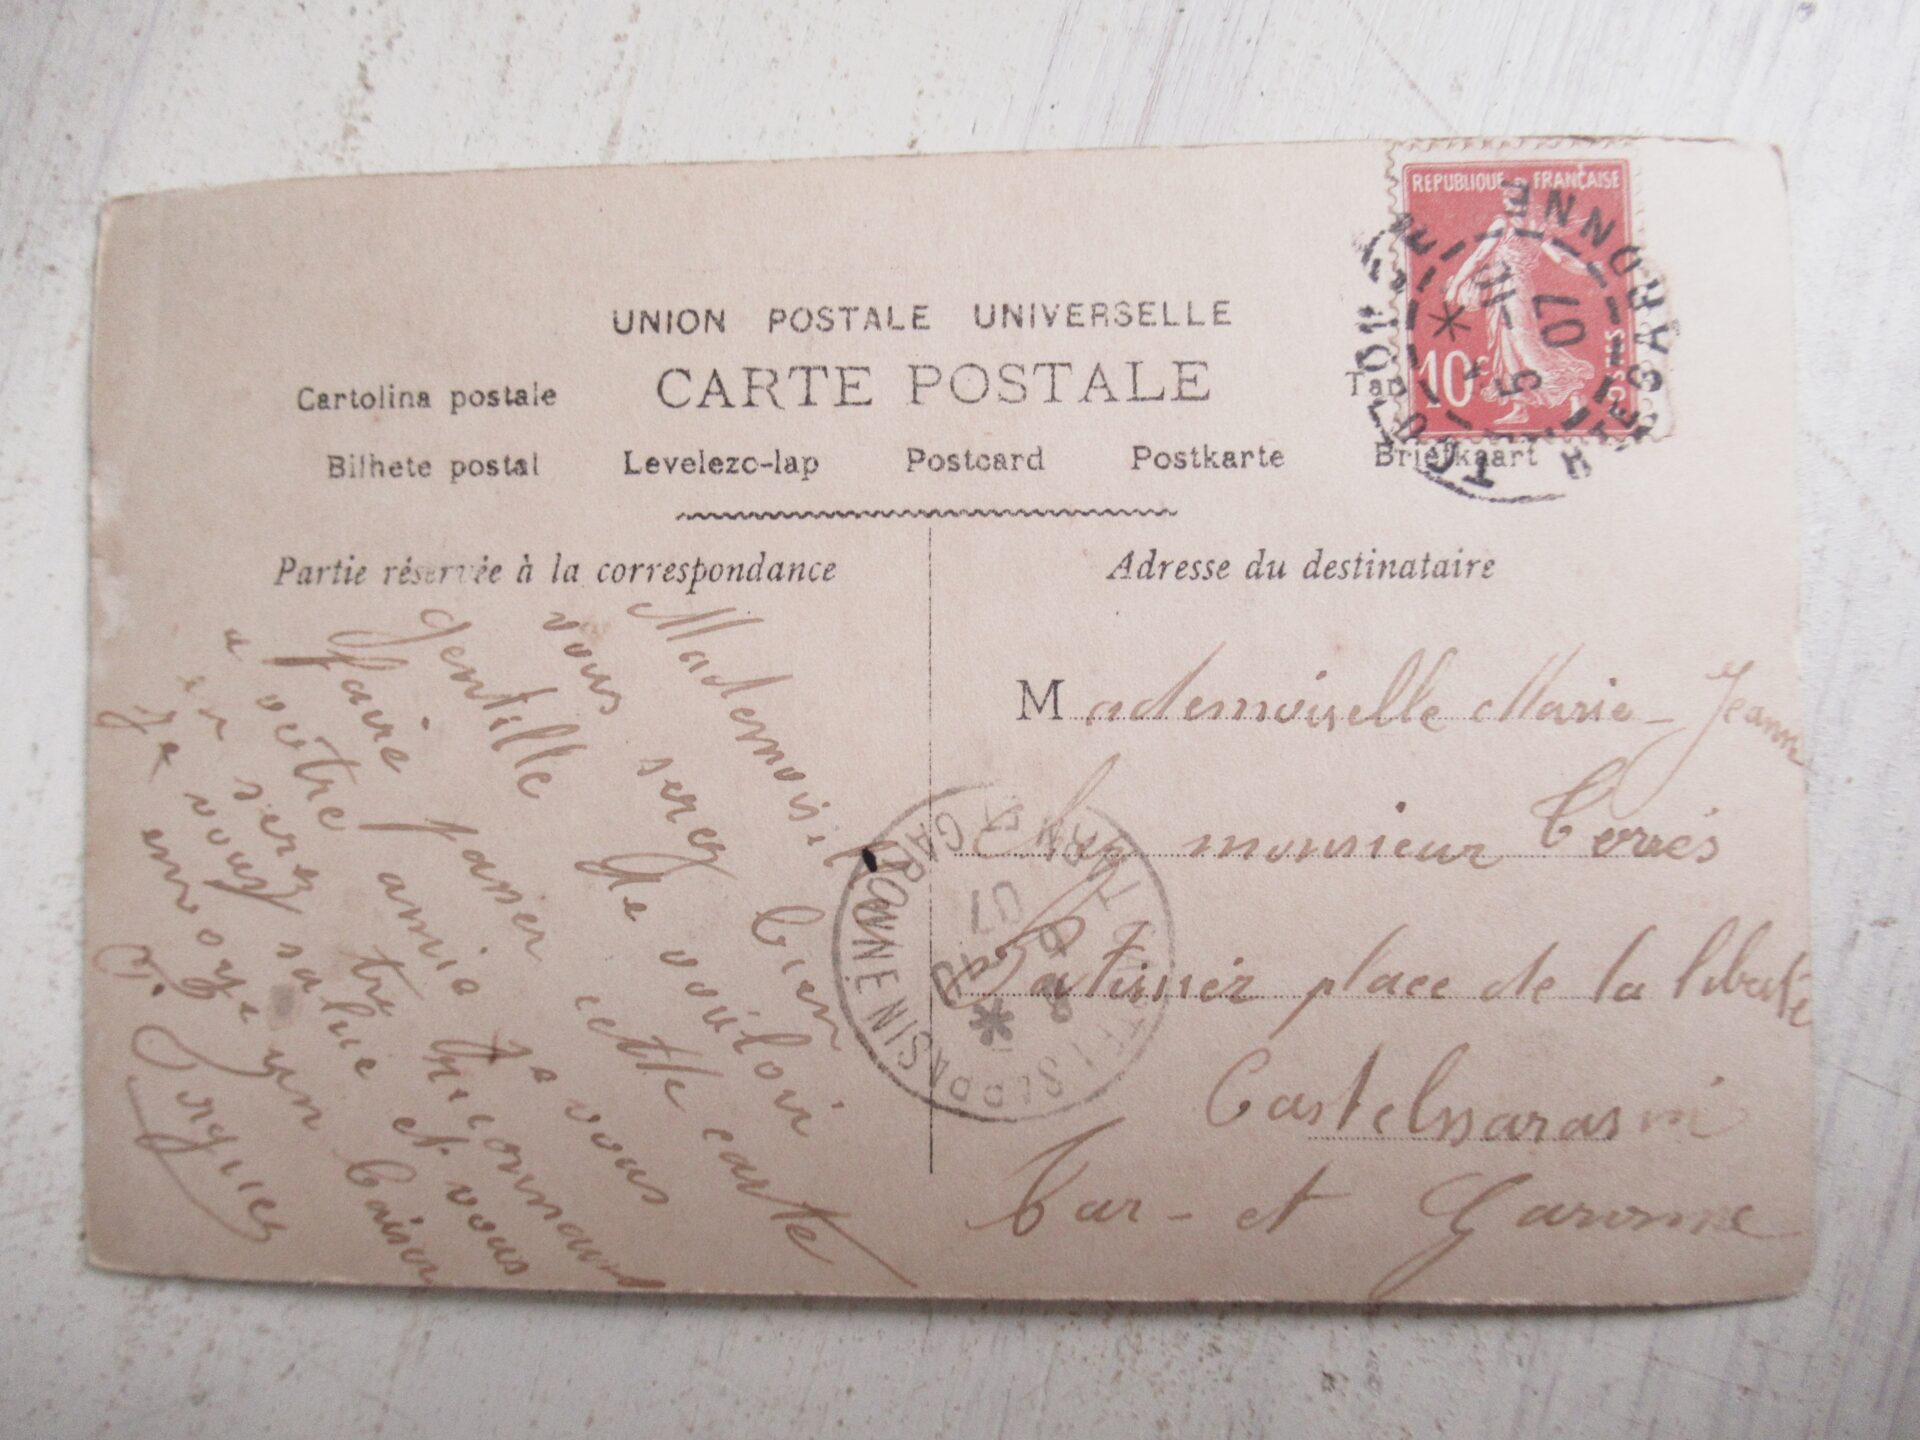 REPUBLIQUE FRANÇAISE
10c
POSTES
TOULOUSE
HTE GARONNE
5 - 11
07
UNION POSTALE UNIVERSELLE
CARTE POSTALE
Cartolina postale
Bilhete postal Levelezo-lap Postcard Postkarte Briefkaart
Partie réservée à la correspondance
Mademoisel
vous serez bien
Gentille de vouloir
faire passer cette carte
a votre amie
je vous
en serez
Je vous salue et vous
envoye un baiser
Adresse du destinataire
Mademoiselle Marie-Jeanne
Chez monsieur
place de la liberté
Castelssarasin
Tar-et Garonne
07